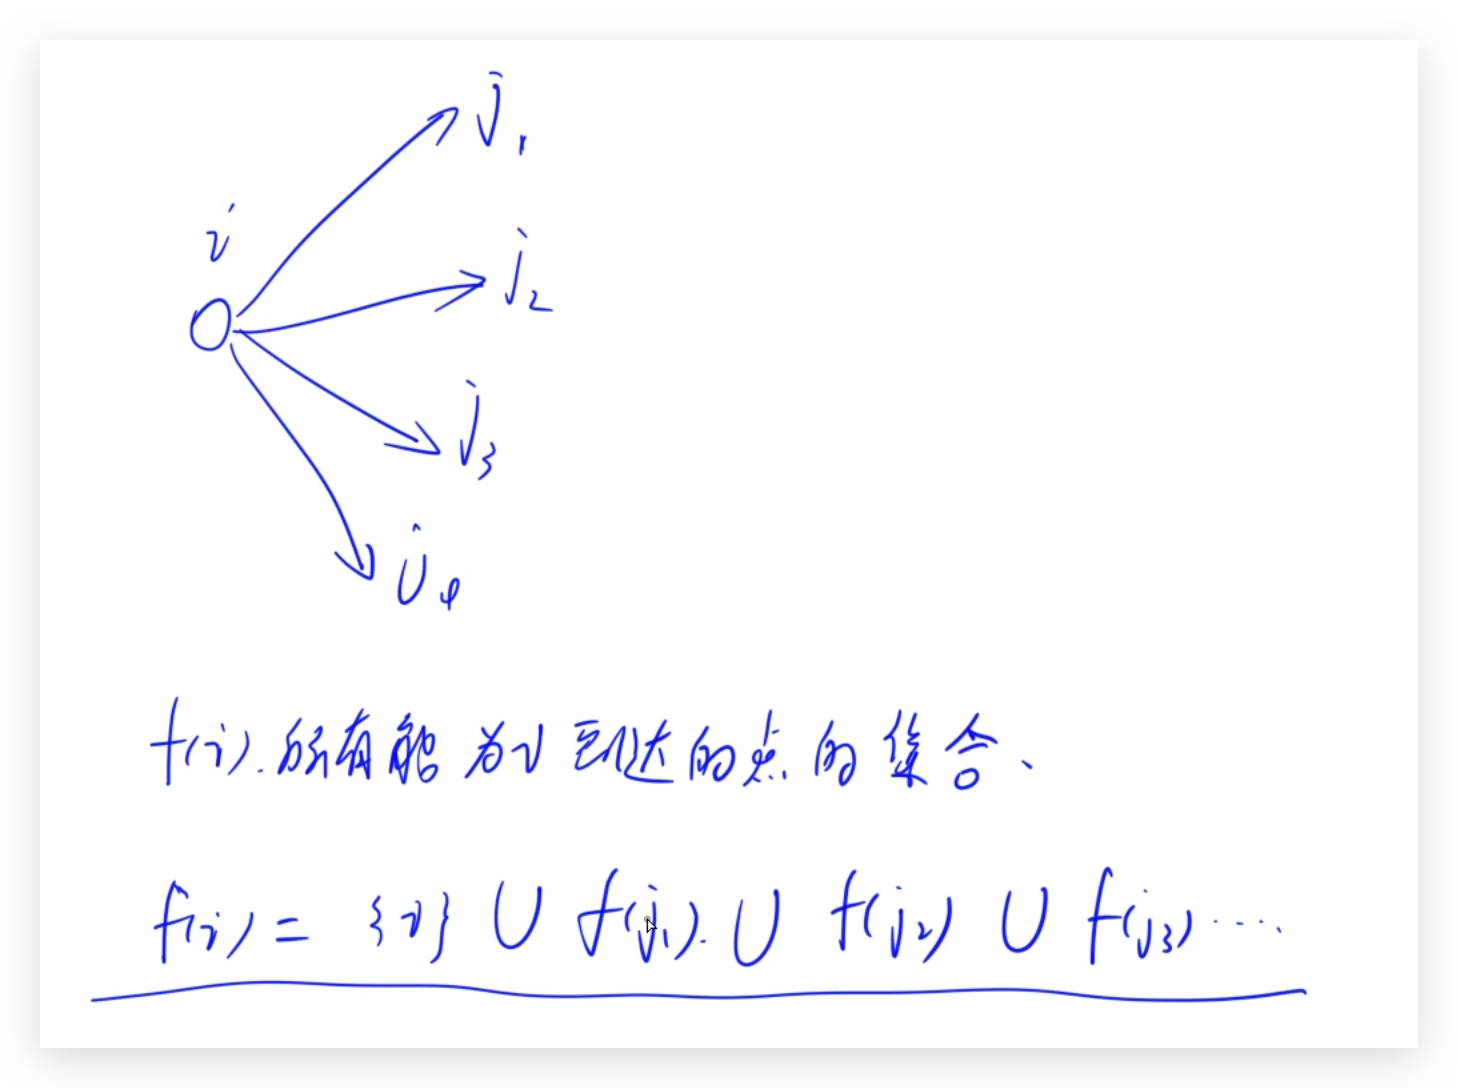 j₁
i
j₂
j₃
j₄
f(i). 所有能为i到达的点的集合、
f(i) = {i} ∪ f(j₁). ∪ f(j₂) ∪ f(j₃) ·····